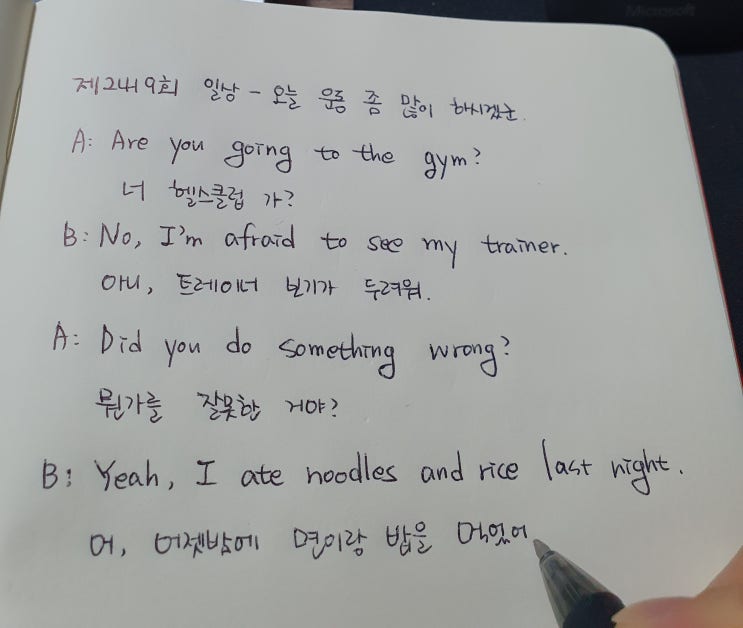 Microsoft
제2419회 일상 - 오늘 운동 좀 많이 하시겠군.
A: Are you going to the gym?
너 헬스클럽 가?
B: No, I'm afraid to see my trainer.
아니, 트레이너 보기가 두려워.
A: Did you do something wrong?
뭔가를 잘못한 거야?
B: Yeah, I ate noodles and rice last night.
어, 어젯밤에 면이랑 밥을 먹었어